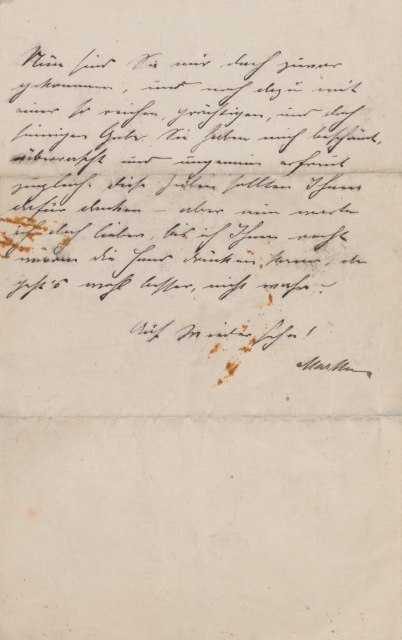 Nun sind Sie mir doch zuvor
gekommen, und noch dazu mit
einer so reichen, prächtigen, und doch
sinnigen Gabe. Sie haben mich beschämt,
überrascht und ungemein erfreut
zugleich. Diese Zeilen sollten Ihnen
dafür danken – aber nun warte
ich doch lieber, bis ich Ihnen recht
die Hand drücken kann, da
geht's wohl besser, nicht wahr?
Auf Wiedersehn!
Martha